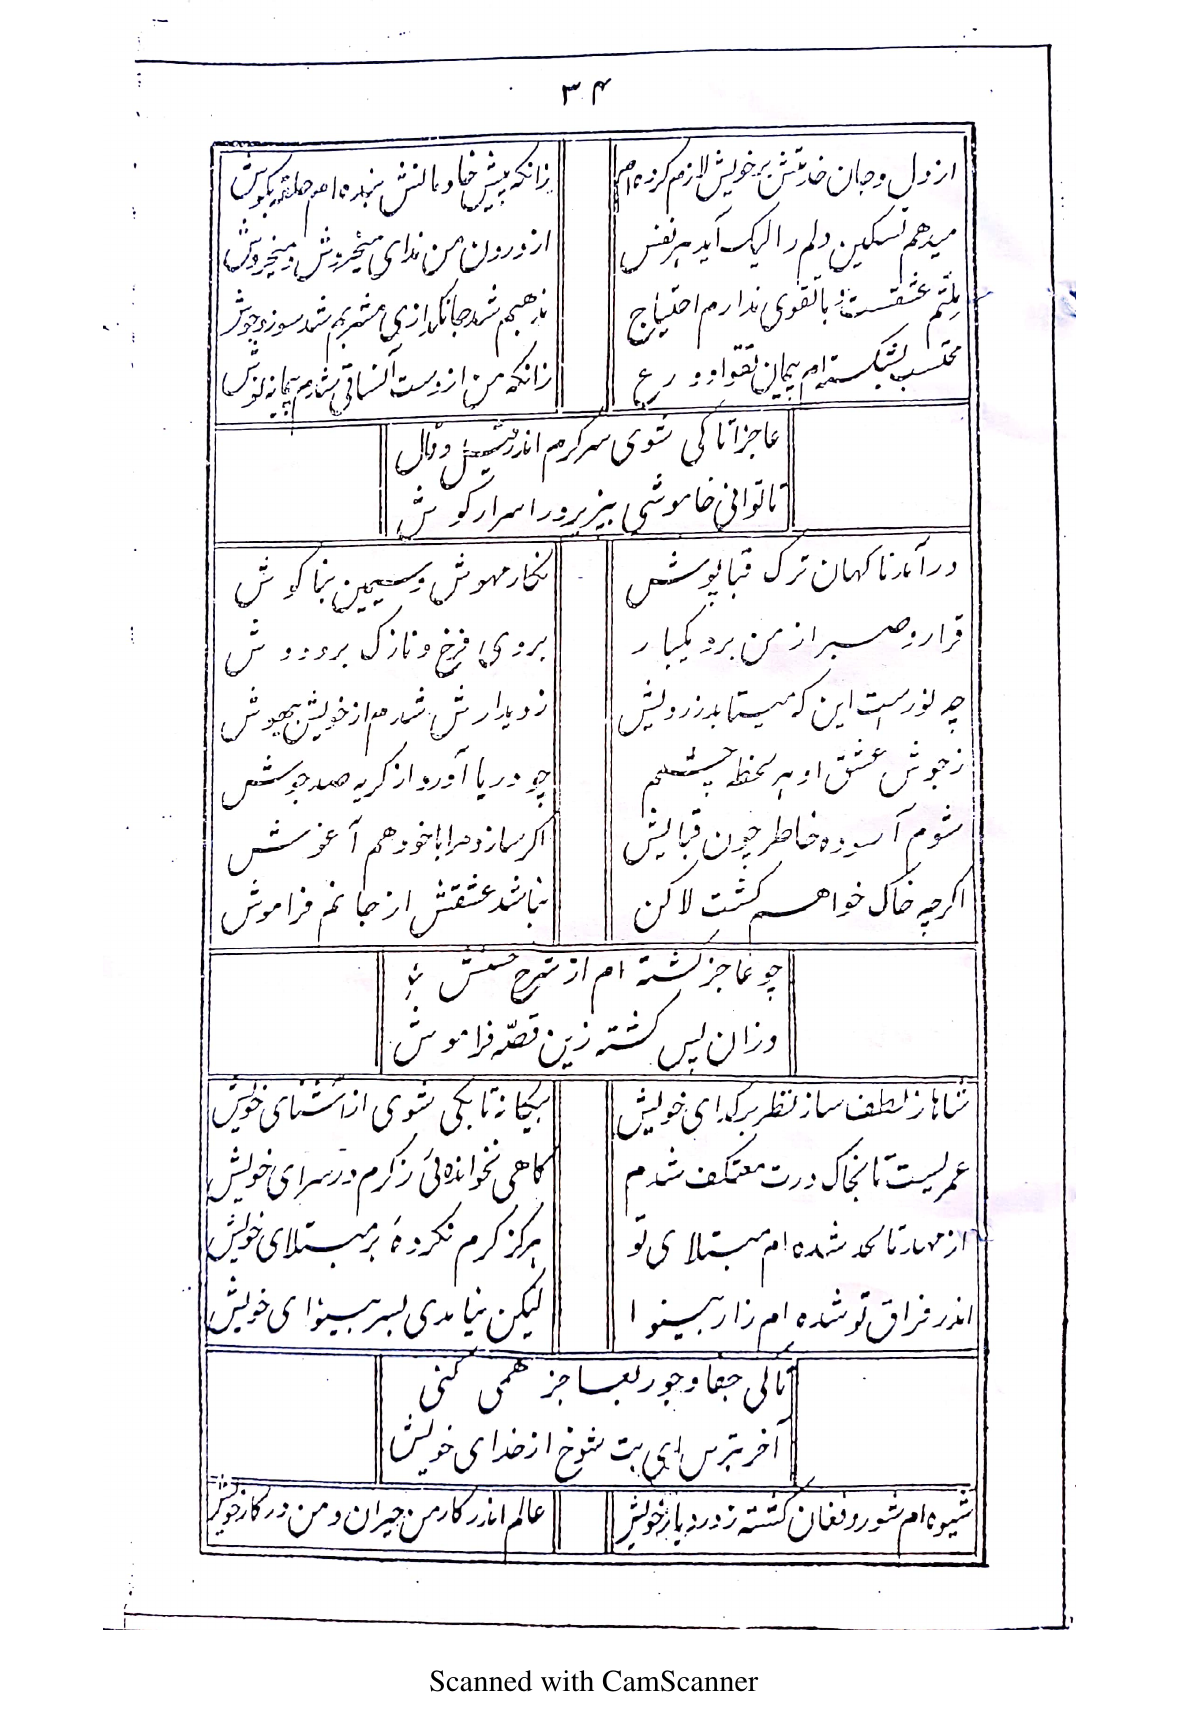 ۳۴
از دل و جان خدمتش بر خویش لازم کرده ام زانکه پیش خادمانش بنده ام حلقه بکوش
میدهم تسکین دلم را لیک آید هر نفس از درون من ندای میخروش و میخروش
ملتم عشقست و با تقوی ندارم احتیاج مذهبم شد جانکدازی مشربم شد سوز و جوش
محتسب بشکسته ام پیمان تقوا و ورع زانکه من از دست آنساقی شدم پیمانه نوش
عاجزا تا کی شوی سرکرم اندر قیل و قال
تا توانی خاموشی بپزیر و در اسرار کوش
در آمد ناکهان ترک قباپوش نکار مهوش و سیمین بناکوش
قرار و صبر از من برد یکبار بروی فرخ و نازک برودوش
چه نورست این که میتابد ز رویش ز دیدارش شدم از خویش بیهوش
ز جوش عشق او هر لحظه چشمم چو دریا آورد از کریه صد جوش
شوم آسوده خاطر چون قبایش اکر سازد مرا با خود هم آغوش
اکرچه خاک خواهم کشت لاکن نباشد عشقش از جانم فراموش
چو عاجز کشته ام از شرح حسنش
وزان پس کشته زین قصّه فراموش
شاها ز لطف ساز نظر بر کدای خویش بیکانه تا بکی شوی از آشنای خویش
عمریست تا بخاک درت معتکف شدم کاهی نخوانده ئی ز کرم در سرای خویش
از مهد تا لحد شده ام مبتلای تو هرکز کرم نکردۀ بر مبتلای خویش
اندر فراق تو شده ام زار و بینوا لیکن نیامدی بسر بینوای خویش
تا کی جفا و جور بعاجز همی کنی
آخر بترس ای بت شوخ از خدای خویش
شیوه ام شور و فغان کشته ز درد یار خویش عالم اندر کار من حیران و من در کار خویش
Scanned with CamScanner